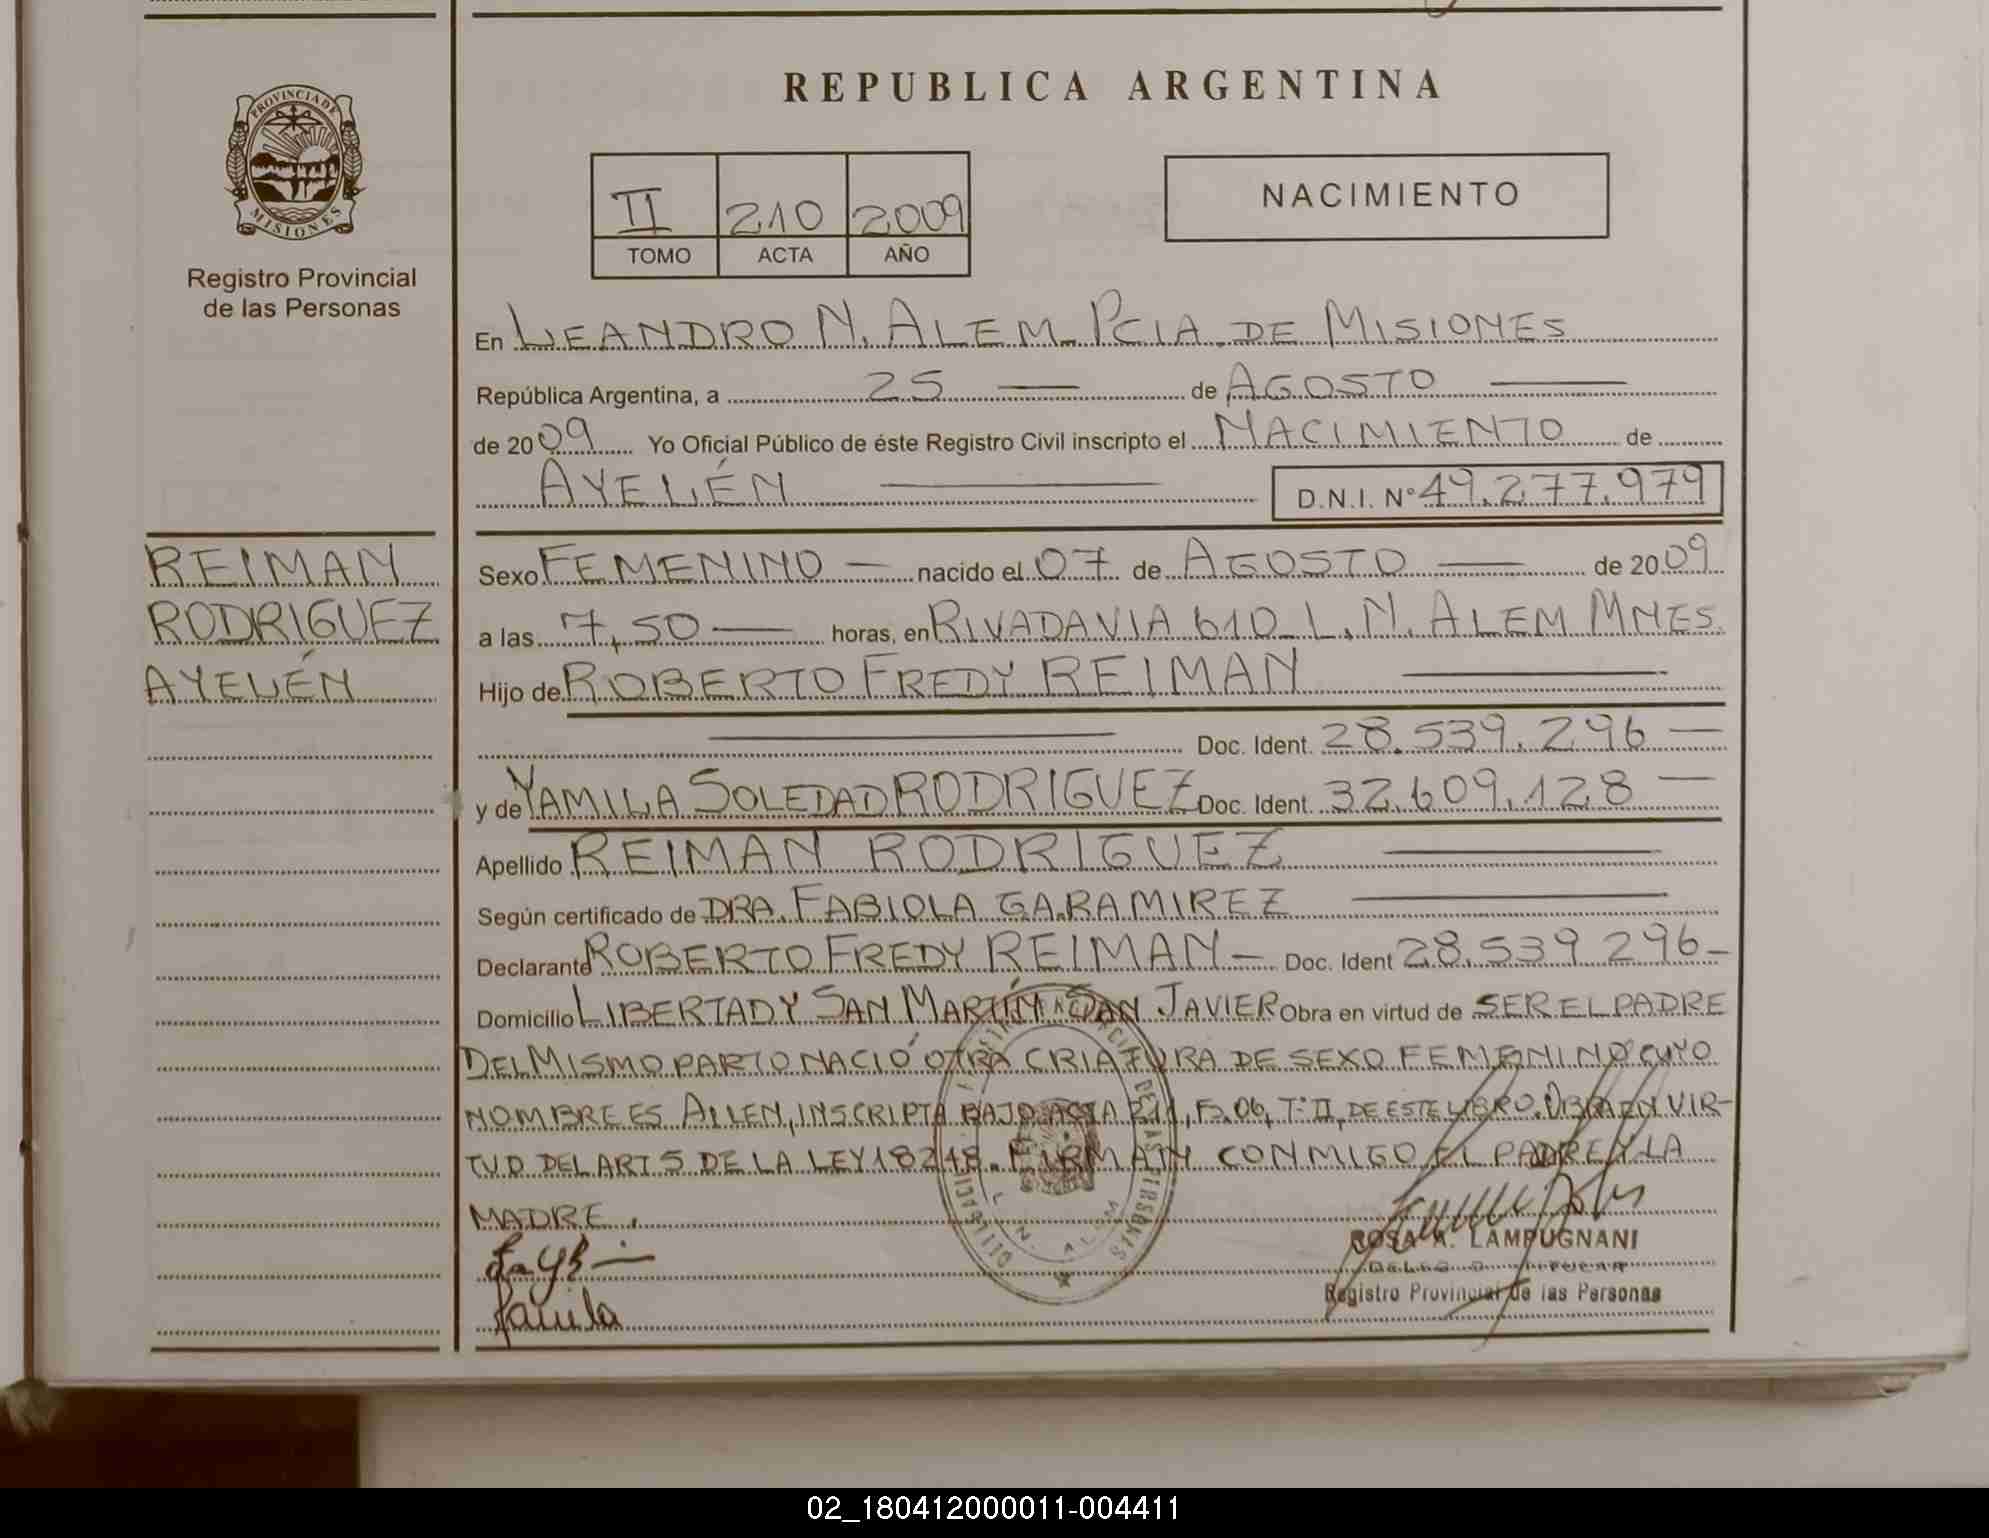 REPUBLICA ARGENTINA
PROVINCIA DE
MISIONES
Registro Provincial
de las Personas
II 210 2009
TOMO ACTA AÑO
NACIMIENTO
En LEANDRO N. ALEM. PCIA. DE MISIONES
República Argentina, a 25 — de AGOSTO —
de 2009 Yo Oficial Público de éste Registro Civil inscripto el NACIMIENTO de
AYELÉN — D.N.I. N° 49.277.979
REIMAN
RODRIGUEZ
AYELÉN
Sexo FEMENINO — nacido el 07 de AGOSTO — de 2009
a las 7,50 — horas, en RIVADAVIA 610 L.N. ALEM MNES.
Hijo de ROBERTO FREDY REIMAN —
— Doc. Ident. 28.539.296 —
y de YAMILA SOLEDAD RODRIGUEZ Doc. Ident. 32.609.128 —
Apellido REIMAN RODRIGUEZ —
Según certificado de DRA. FABIOLA G.A.RAMIREZ —
Declarante ROBERTO FREDY REIMAN — Doc. Ident 28.539.296 —
Domicilio LIBERTAD Y SAN MARTÍN SAN JAVIER Obra en virtud de SER EL PADRE
DEL MISMO PARTO NACIÓ OTRA CRIATURA DE SEXO FEMENINO CUYO
NOMBRE ES AILLEN, INSCRIPTA BAJO ACTA 211, F. 06, T° II, DE ESTE LIBRO. OBRA EN VIR-
TUD DEL ART 5 DE LA LEY 18248. FIRMAN CONMIGO EL PADRE Y LA
MADRE.
ROSA A. LAMPUGNANI
Registro Provincial de las Personas
L. N. ALEM
02_180412000011-004411